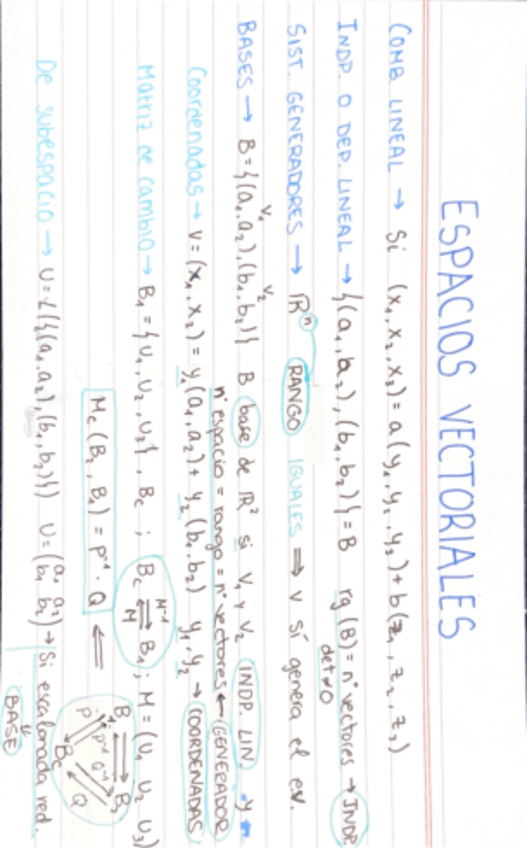 ESPACIOS VECTORIALES
COMB LINEAL → Si (x₁, x₂, x₃) = a(y₁, y₂, y₃) + b(z₁, z₂, z₃)
INDP. O DEP. LINEAL → {(a₁, a₂), (b₁, b₂)} = B rg(B) = nº vectores → INDP.
det ≠ 0
SIST. GENERADORES → ℝⁿ RANGO IGUALES ⇒ v sí genera el e.v.
V₁ V₂
BASES → B = {(a₁, a₂), (b₁, b₂)} B base de ℝ² si V₁ y V₂ INDP. LIN. y
nº espacio = rango = nº vectores ← GENERADOR
Coordenadas → V = (x₁, x₂) = y₁(a₁, a₂) + y₂(b₁, b₂) y₁, y₂ → COORDENADAS
Matriz de cambio → B₁ = {u₁, u₂, u₃}, Bc ; Bc ⇌ B₁ ; M = (u₁ u₂ u₃)
M⁻¹
M
Mc(B₂, B₁) = P⁻¹ · Q ⇐
B₁ ⇌ B₂
P P⁻¹ Q⁻¹ Q
Bc
De subespacio → U = L({(a₁, a₂), (b₁, b₂)}) U = (a₁ a₂ b₁ b₂) → Si escalonada red.
BASE